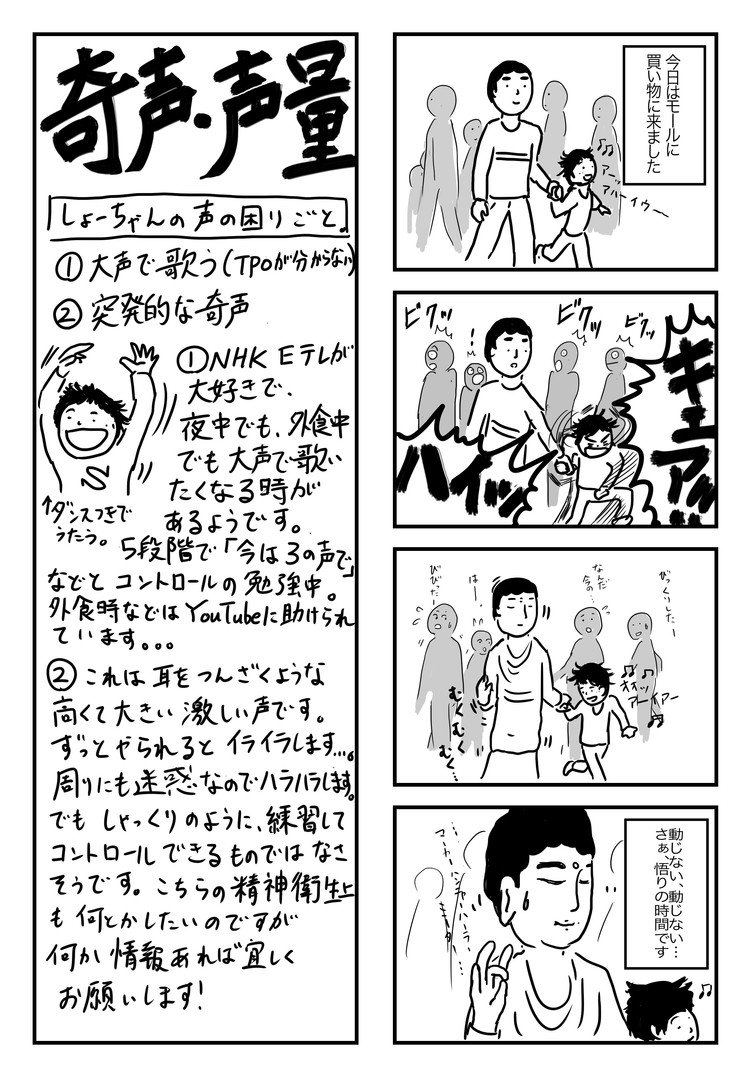 奇声・声量
しょーちゃんの声の困りごと。
①大声で歌う(TPOが分からない)
②突発的な奇声
①NHK Eテレが
大好きで、
夜中でも、外食中
でも大声で歌い
たくなる時が
あるようです。
↑ダンスつきで
うたう。
5段階で「今は3の声で」
などと コントロールの勉強中。
外食時などはYouTubeに助けられ
ています。。。
②これは耳をつんざくような
高くて大きい激しい声です。
ずっとやられるとイライラします…。
周りにも迷惑なのでハラハラします。
でも しゃっくりのように、練習して
コントロールできるものではなさ
そうです。こちらの精神衛生上
も何とかしたいのですが
何か情報あれば宜しく
お願いします!
今日はモールに
買い物に来ました
♫
アーッ
アルーイウー
ビクッ
!
ビクッ
ビクッ
キュアッ
ハイッ
びっくりしたー
なんだ
今の…
はー、
びびったー
♫
オオッ
アーイアー
むくむくむく…
動じない、動じない…
さぁ、悟りの時間です
♪